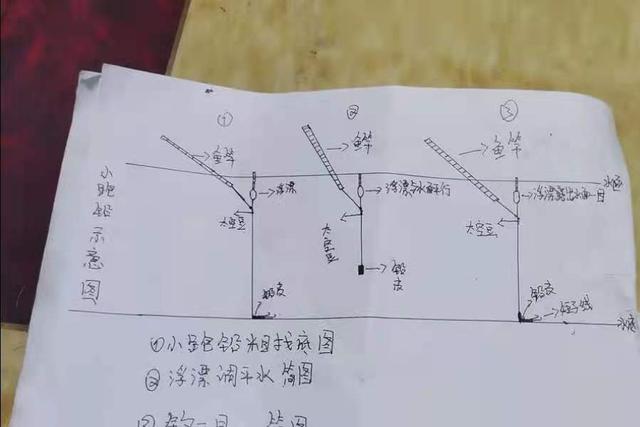 ① ② ③
鱼竿 鱼竿 鱼竿
浮漂 浮漂与水面平行 浮漂露出水面一目
水面
太空豆 太空豆 太空豆
铅皮 铅皮 铅皮
子线
水底
小跑铅示意图
①小跑铅粗找底图
②浮漂调平水简图
钓一目 简图